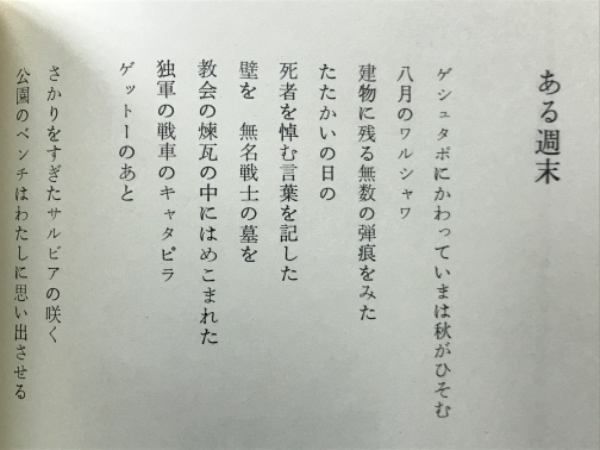 ある週末
ゲシュタポにかわっていまは秋がひそむ
八月のワルシャワ
建物に残る無数の弾痕をみた
たたかいの日の
死者を悼む言葉を記した
壁を　無名戦士の墓を
教会の煉瓦の中にはめこまれた
独軍の戦車のキャタピラ
ゲットーのあと
さかりをすぎたサルビアの咲く
公園のベンチはわたしに思い出させる